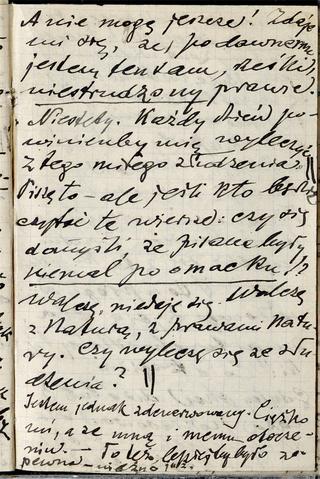 A nie mogę jeszcze! Zdaje
mi się, że, po dawnemu
jestem ten sam, rześki,
niestrudzony prawie.
Niestety. Każdy dzień po-
winienby mię wyleczyć
z tego miłego złudzenia.
Piszę to – ale jeśli kto będzie
czytać te wiersze: czy się
domyśli, że pisane były
niemal po omacku!?
Walczę, nie daję się. Walczę
z Naturą, z prawami Natu-
ry. Czy wyleczę się ze złu-
dzenia?
Jestem jednak zdenerwowany. Ciężko
mi, a ze mną i memu otocze-
niu. – To też lepiej by było za-
pewne – już.